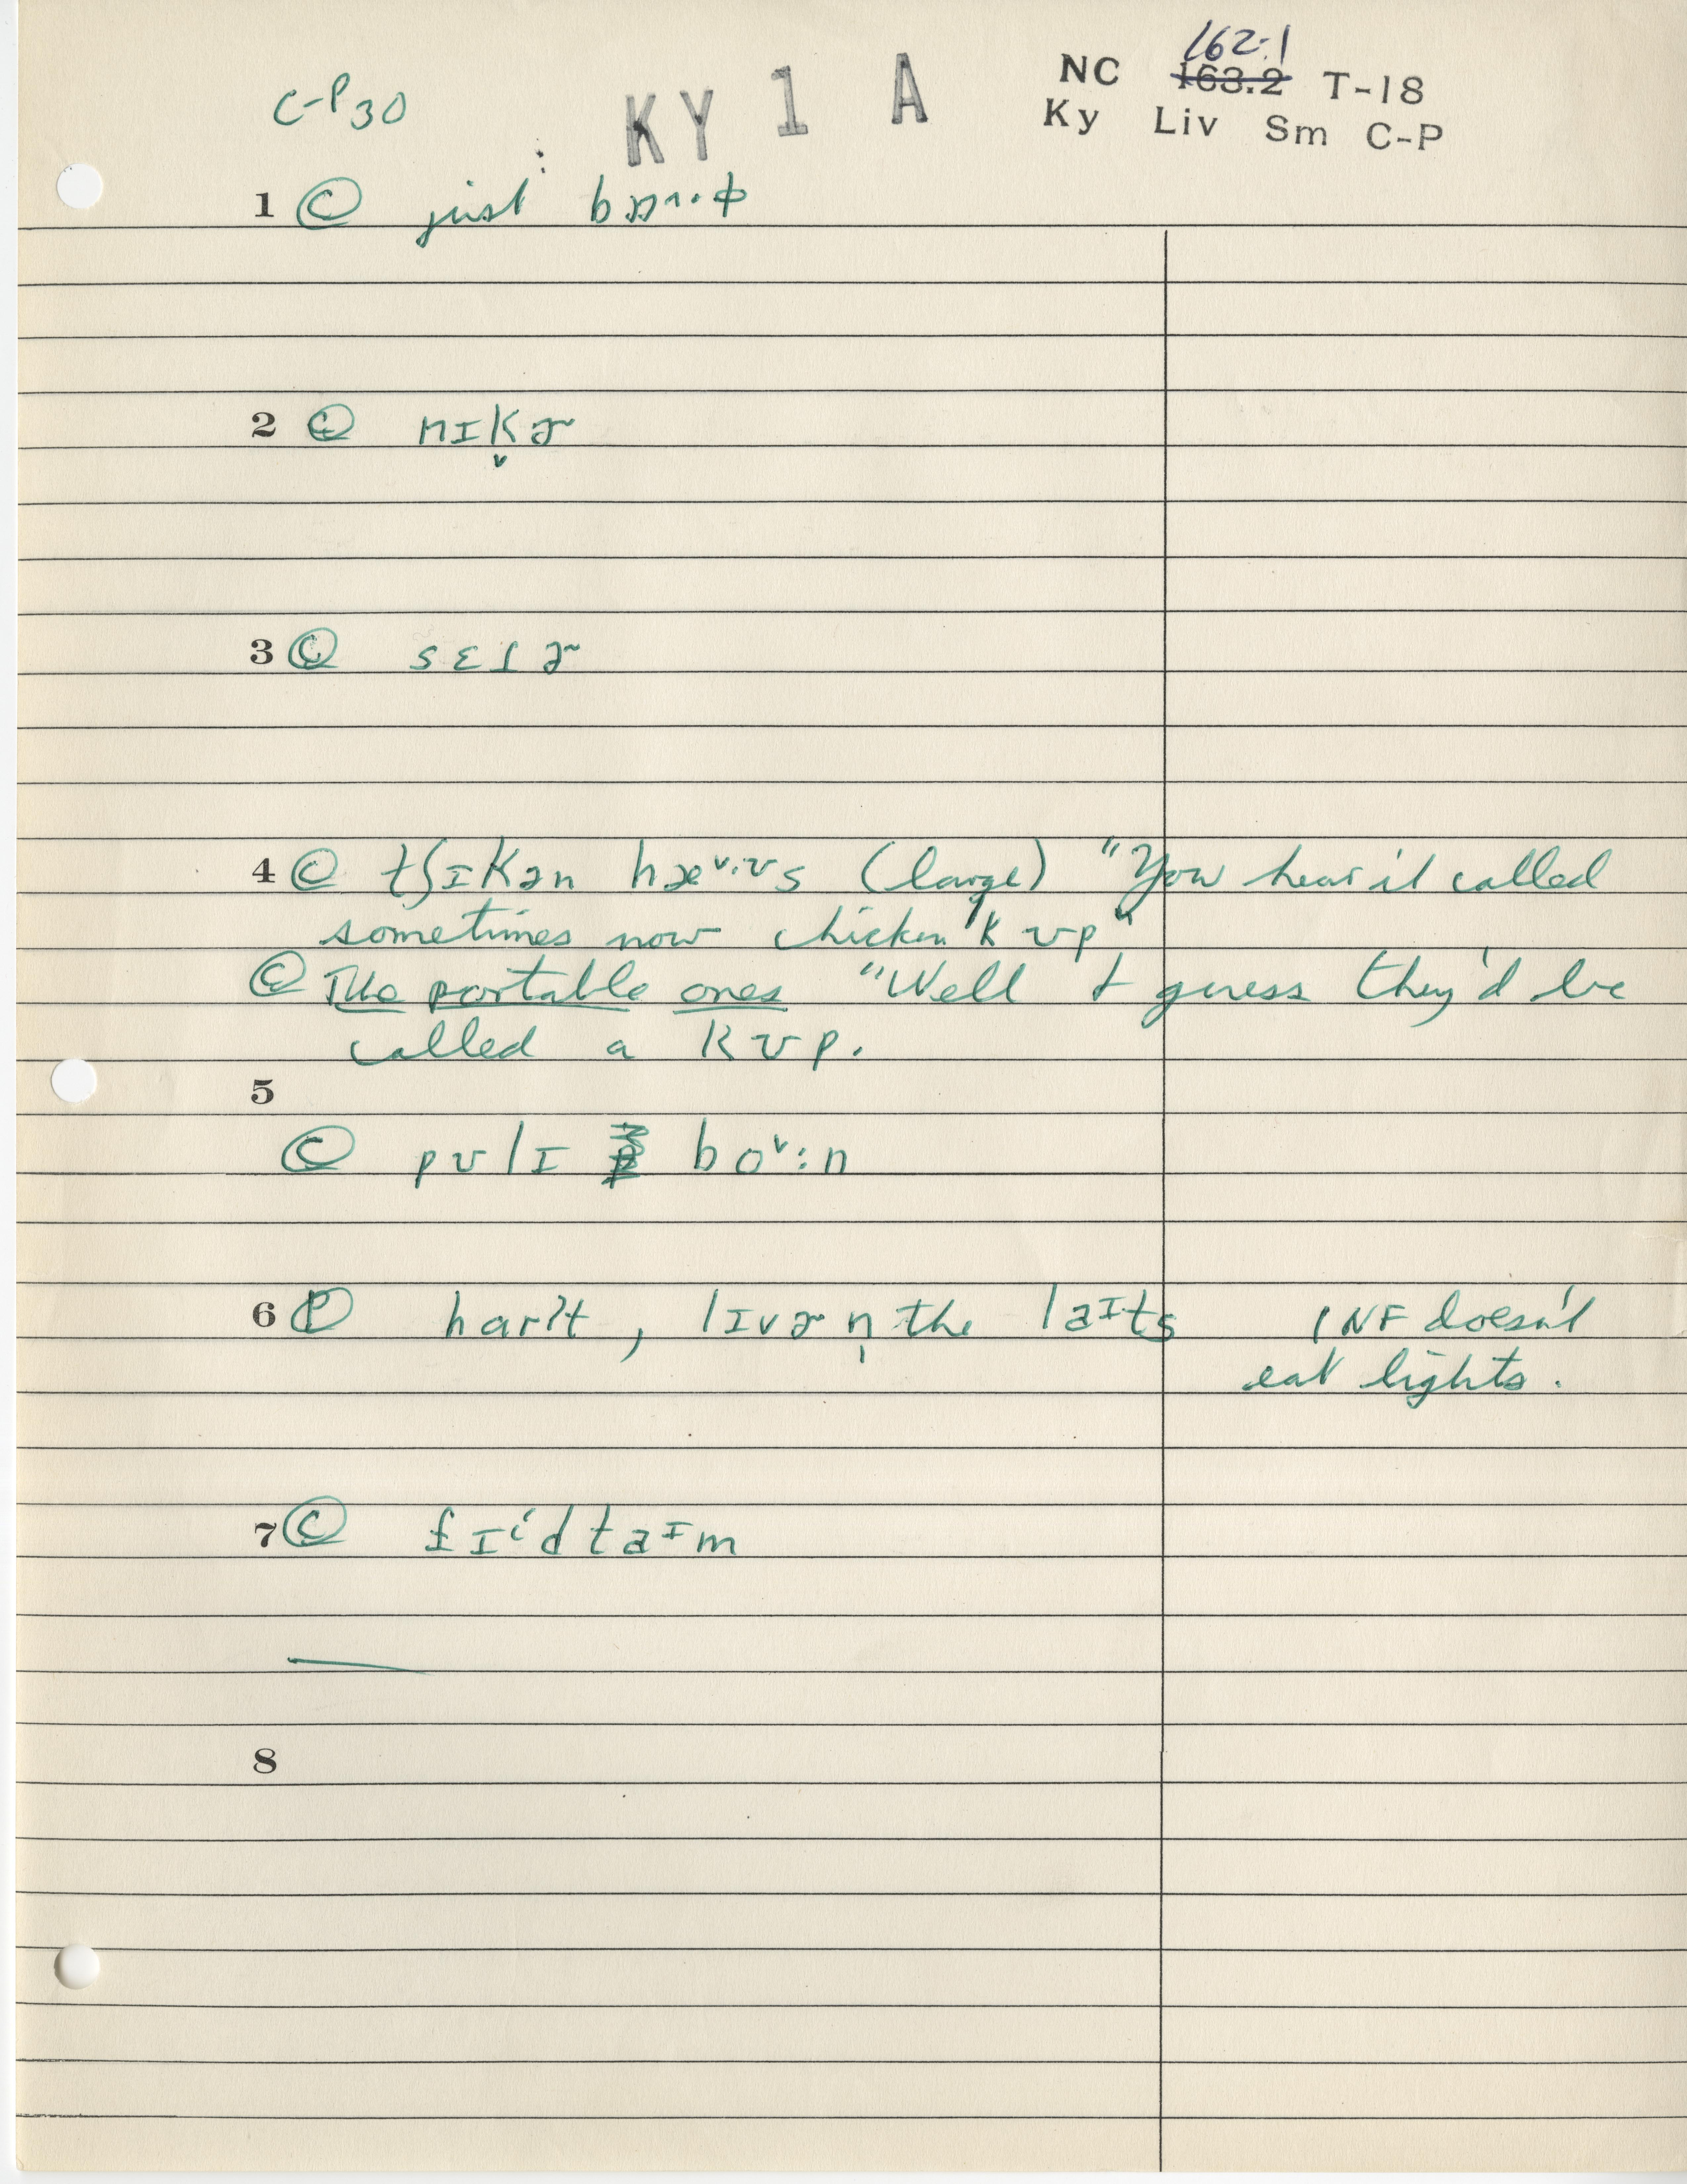 C-P30 KY 1 A NC 162.1 T-18
163.2
Ky Liv Sm C-P
1 Ⓒ just
2 Ⓒ nɪk̬ɚ
3 Ⓒ
4 Ⓒ tʃɪkən hæ˅·ʊs (large) "You hear it called
sometimes now chicken "kʊp"
Ⓒ The portable ones "Well I guess they'd be
called a kʊp.
5
Ⓒ pʊlɪ bo˅:n
6 Ⓟ harʔt, lɪvɚ n̩ the laɪts INF doesn't
eat lights.
7 Ⓒ fɪⁱdtaɪm
8